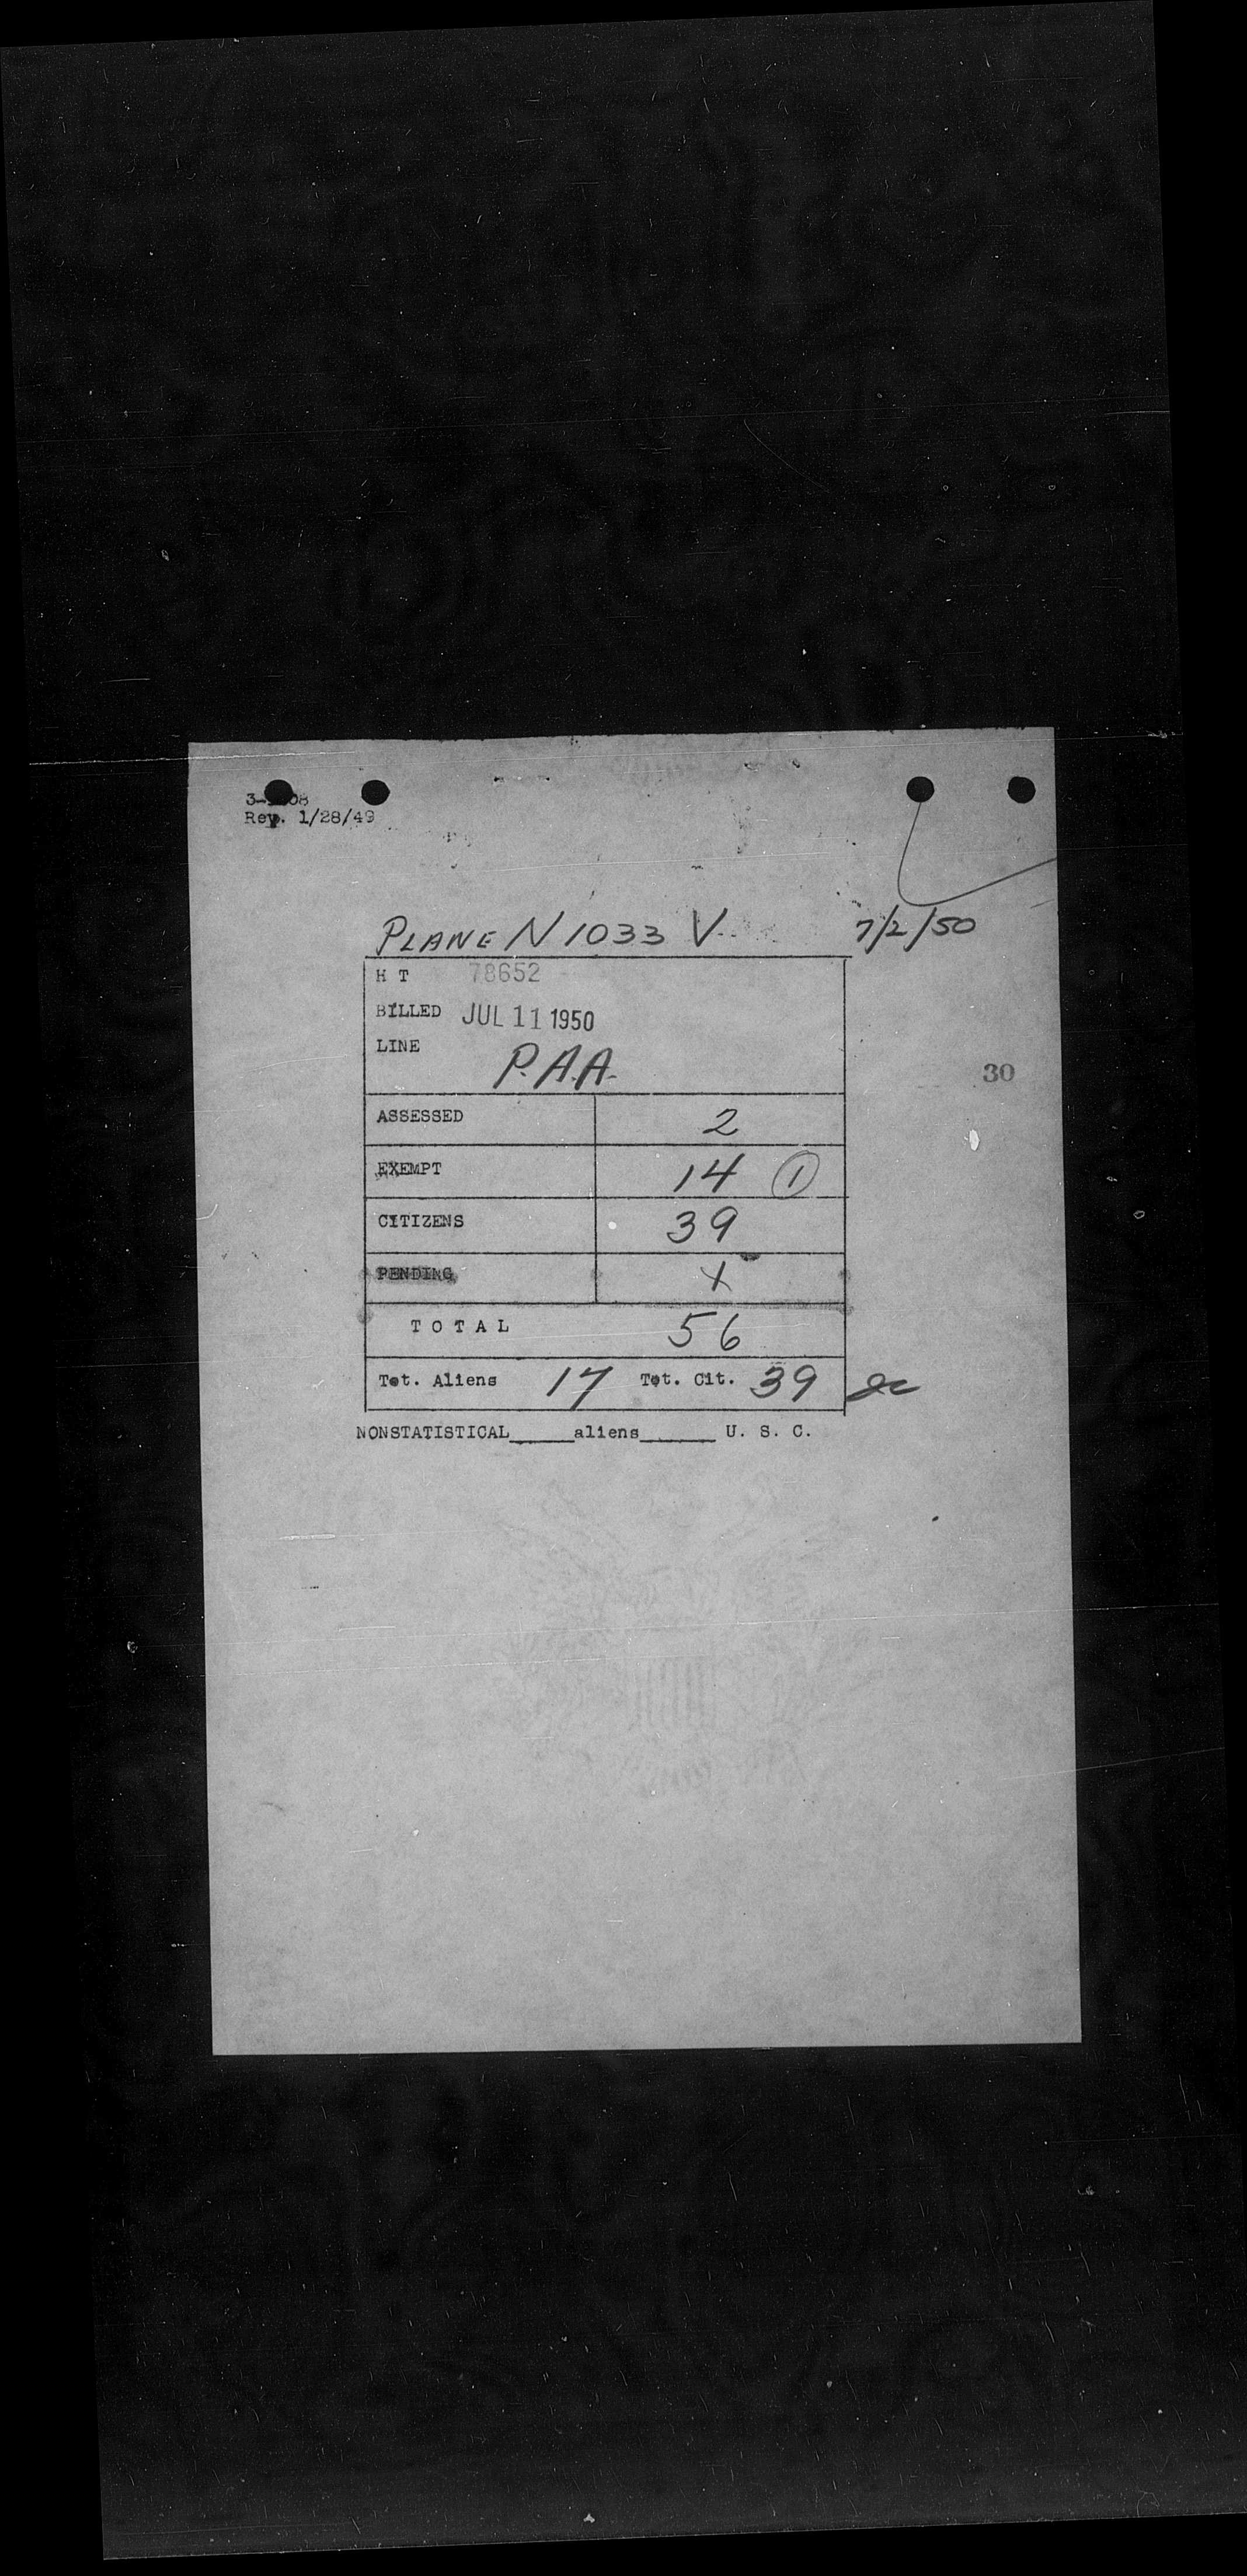 Rev. 1/28/49
PLANE N1033 V 7/2/50
H T 78652
BILLED JUL 11 1950
LINE P.A.A.
30
ASSESSED 2
EXEMPT 14 1
CITIZENS 39
PENDING X
TOTAL 56
Tot. Aliens 17 Tot. Cit. 39
NONSTATISTICAL_____aliens______ U. S. C.